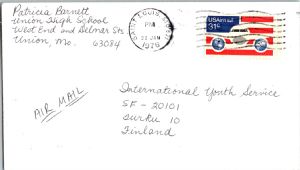 Patricia Barnett
Union High School
West End and Delmar Sts
Union, Mo. 63084
SAINT LOUIS
PM
21 JAN
1976
USAirmail
31c
AIR MAIL
International Youth Service
SF - 20101
Turku 10
Finland